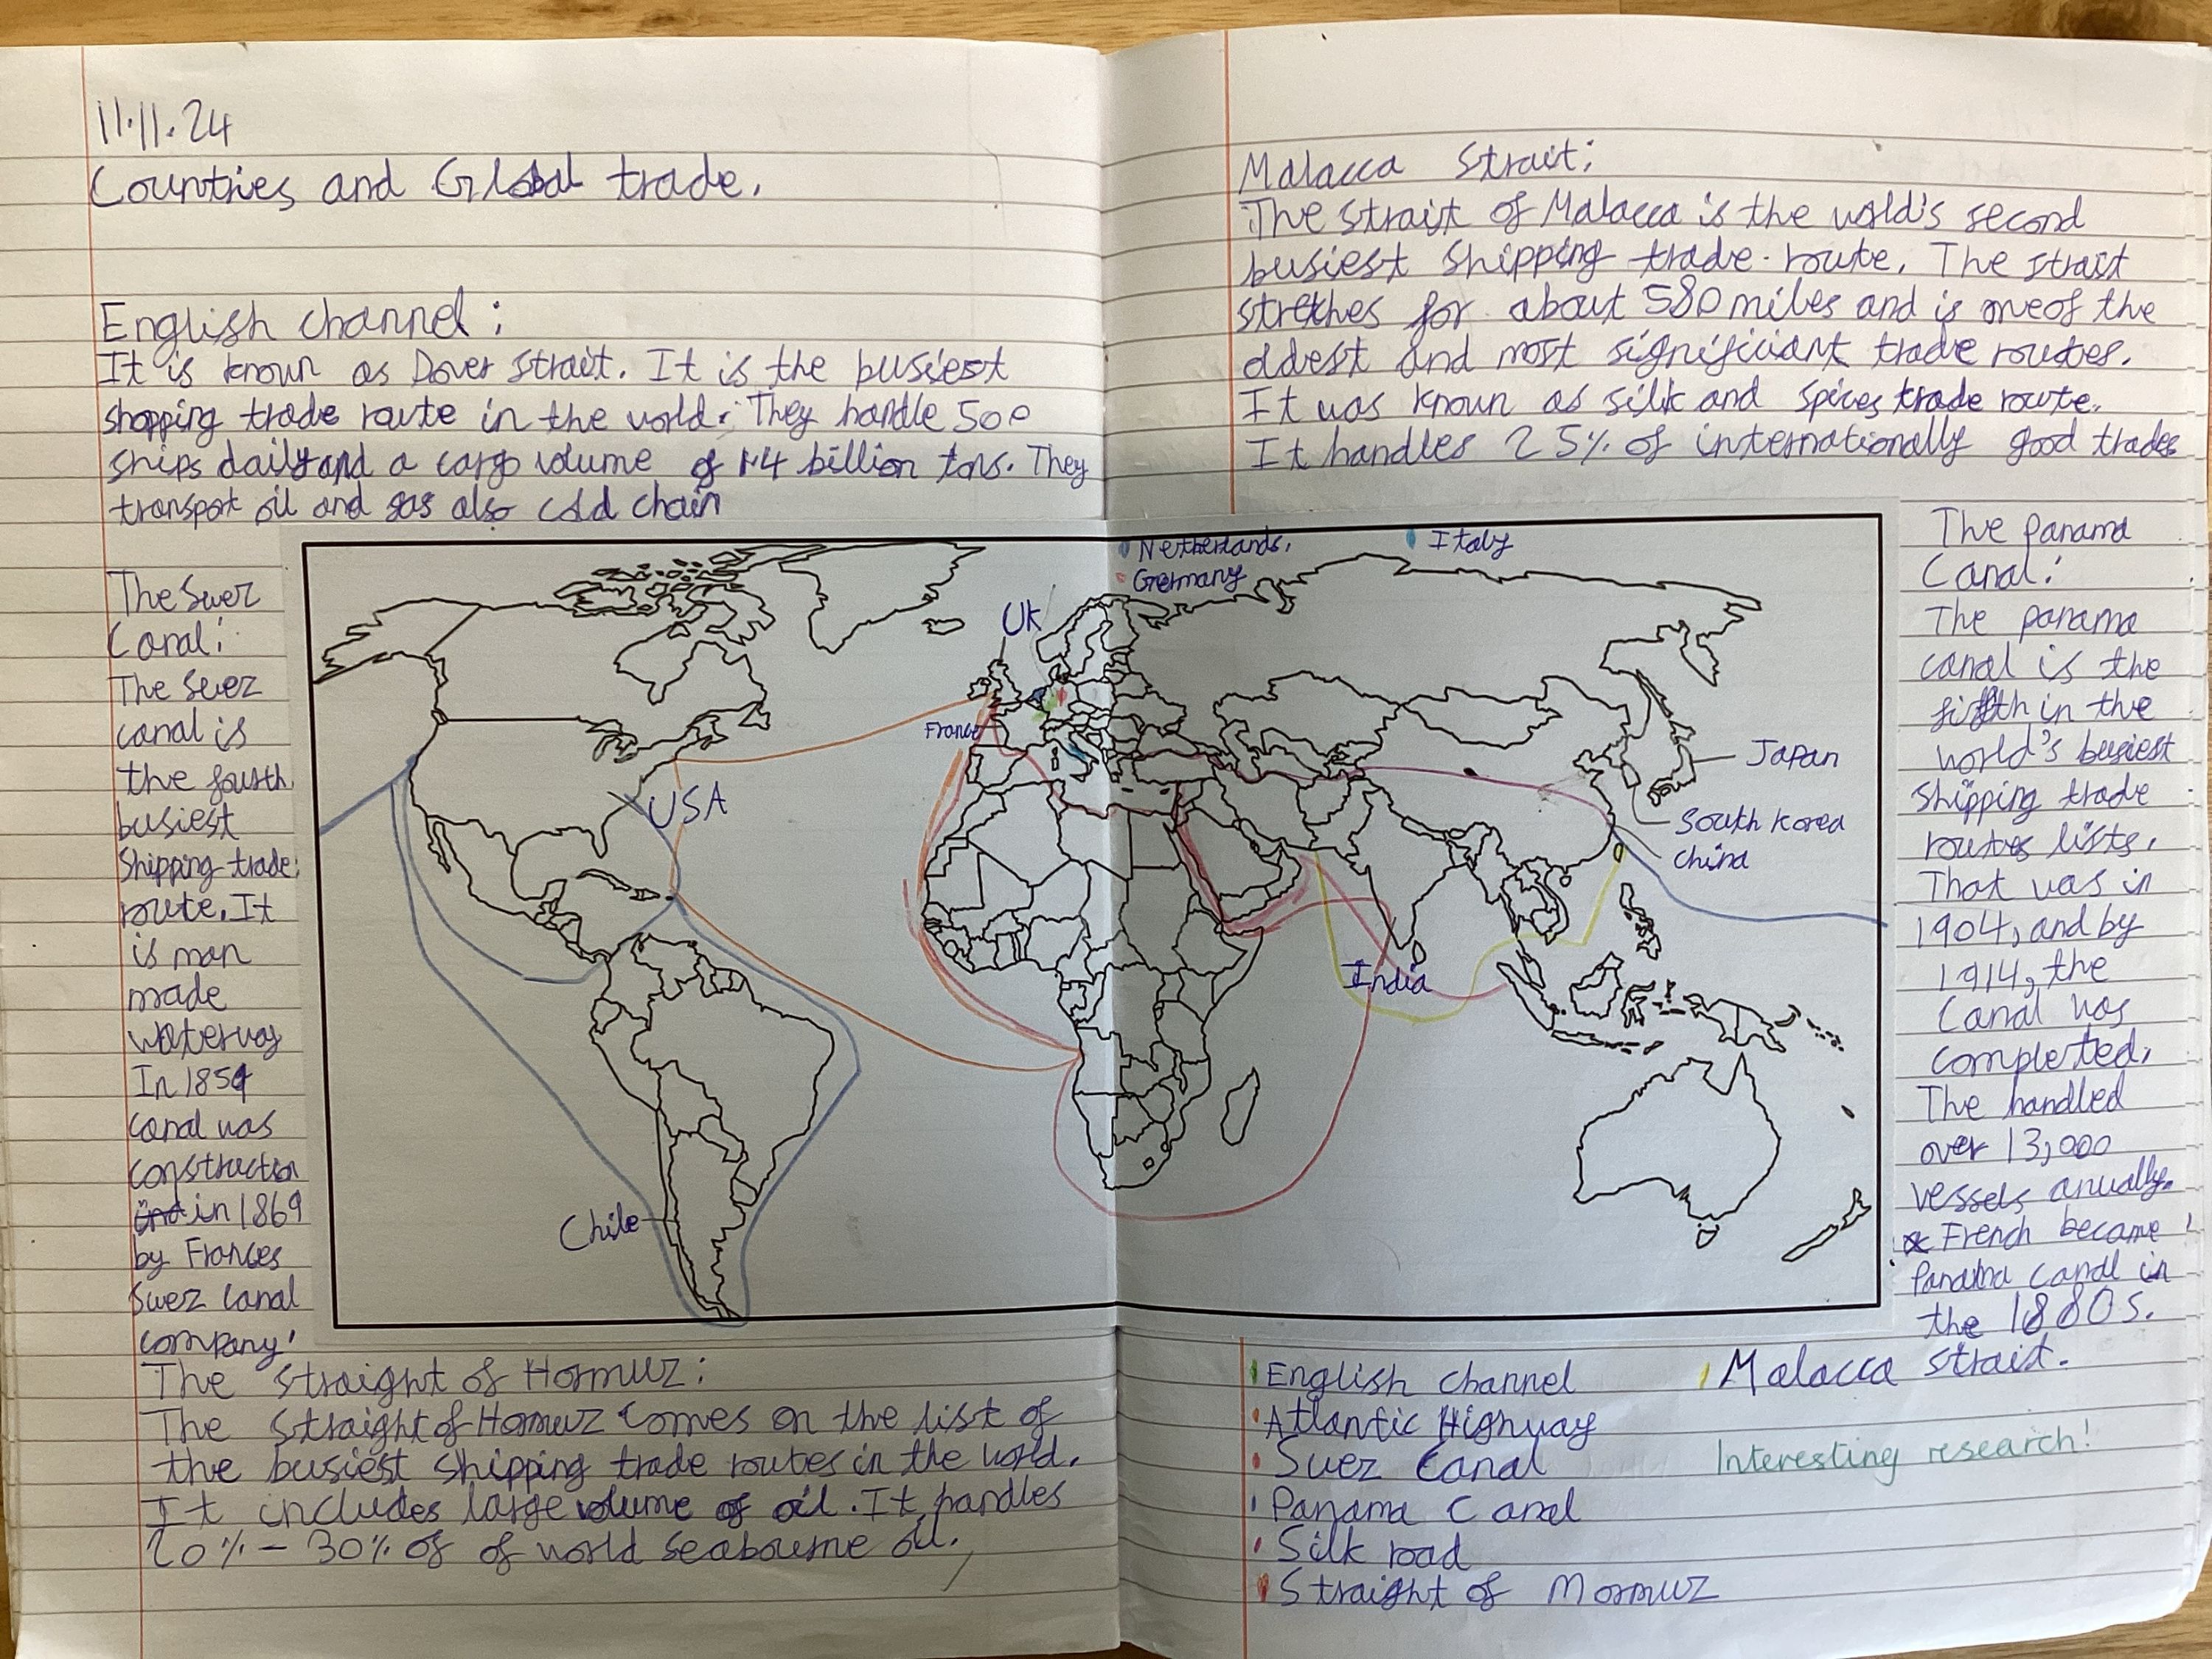 11.11.24
Countries and Global trade.
English channel:
It is known as Dover strait. It is the busiest
shopping trade route in the world. They handle 500
ships daily and a cargo volume of 1.4 billion tons. They
transport oil and gas also cold chain
The Suez
Canal:
The Suez
canal is
the fourth
busiest
Shipping trade
route. It
is man
made
waterway
In 1859
canal was
construction
in 1869
by Frances
Suez Canal
company.
The straight of Hormuz:
The straight of Hormuz comes on the list of
the busiest shipping trade routes in the world.
It includes large volume of oil. It handles
20% - 30% of of world seabourne oil.
Malacca Strait:
The strait of Malacca is the world's second
busiest shipping trade route. The strait
stretches for about 580 miles and is one of the
oldest and most significiant trade routes.
It was known as silk and spices trade route.
It handles 25% of internationally good trades
Netherlands,
Germany
Italy
UK
France
USA
Chile
India
Japan
South korea
china
The panama
Canal:
The panama
canal is the
fifth in the
world's busiest
shipping trade
routes lists.
That was in
1904, and by
1914, the
Canal was
completed.
The handled
over 13,000
vessels anually.
French became
Panama canal in
the 1880s.
English channel
Atlantic Highway
Suez Canal
Panama Canal
Silk road
Straight of Mormuz
Malacca strait.
Interesting research!